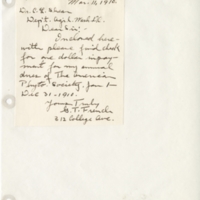 Mar. 16, 1910.
Dr. C. L. Shear
Dep't. Agr'l.
Dear Sir:
Enclosed here-
with please find check
for one dollar in pay-
ment for my annual
dues of the American
Phyto. Society, Jan 1 -
Dec 31 - 1910.
Yours Truly
G. T. French
812 College Ave.